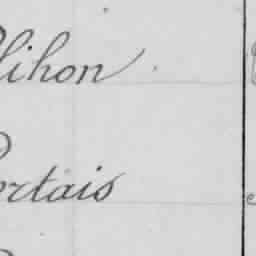 lihon
ortais